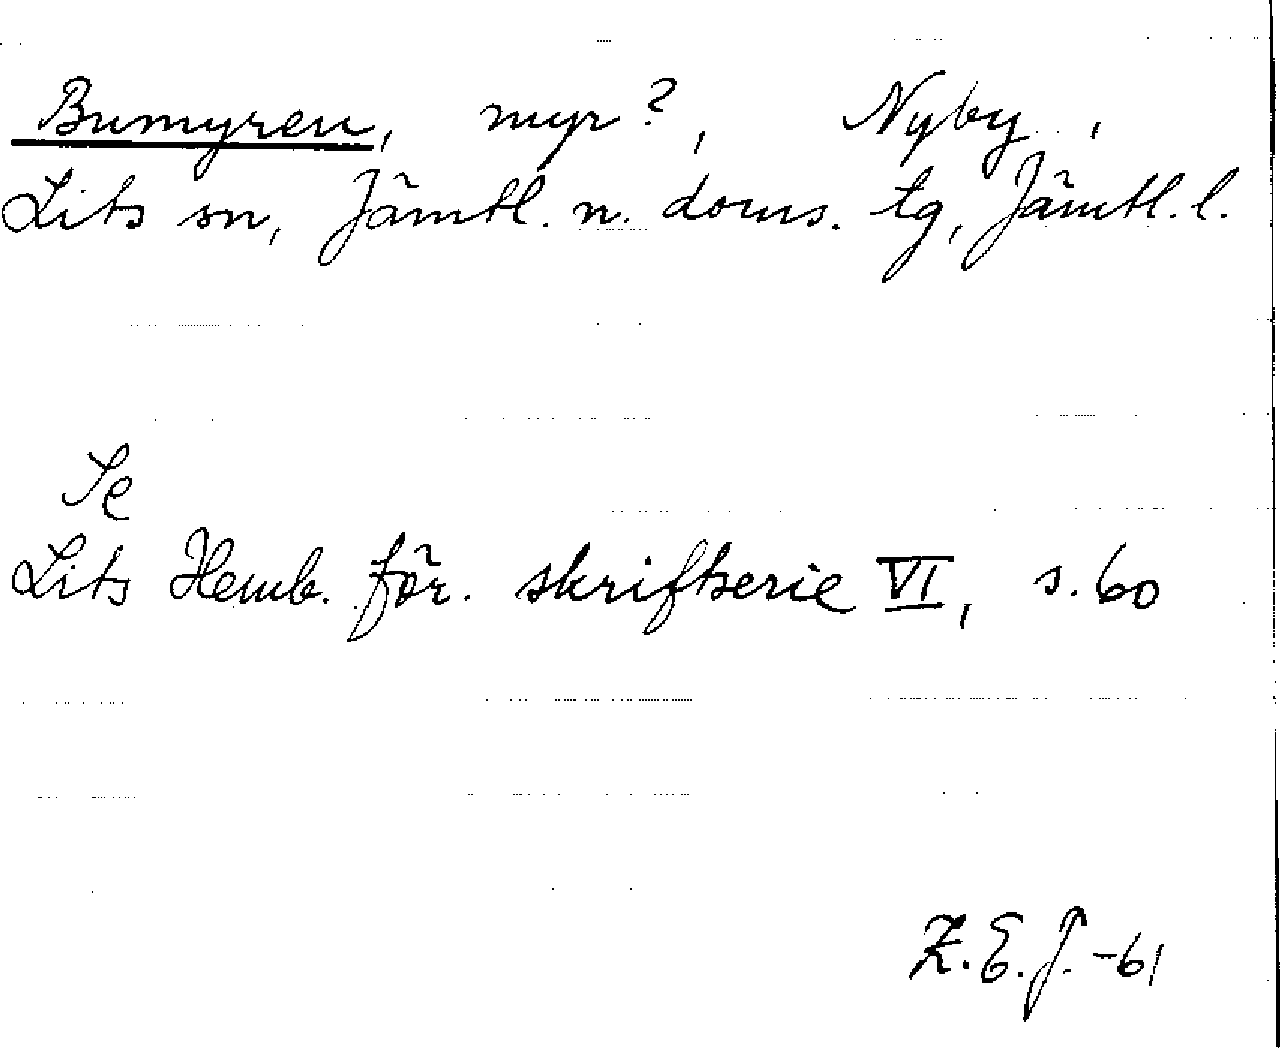 Bumyren, myr?, Nyby,
Lits sn, Jämtl. n. doms. tg, Jämtl. l.
Se
Lits Hemb. för. skriftserie VI, s. 60
Z.E.J. -61